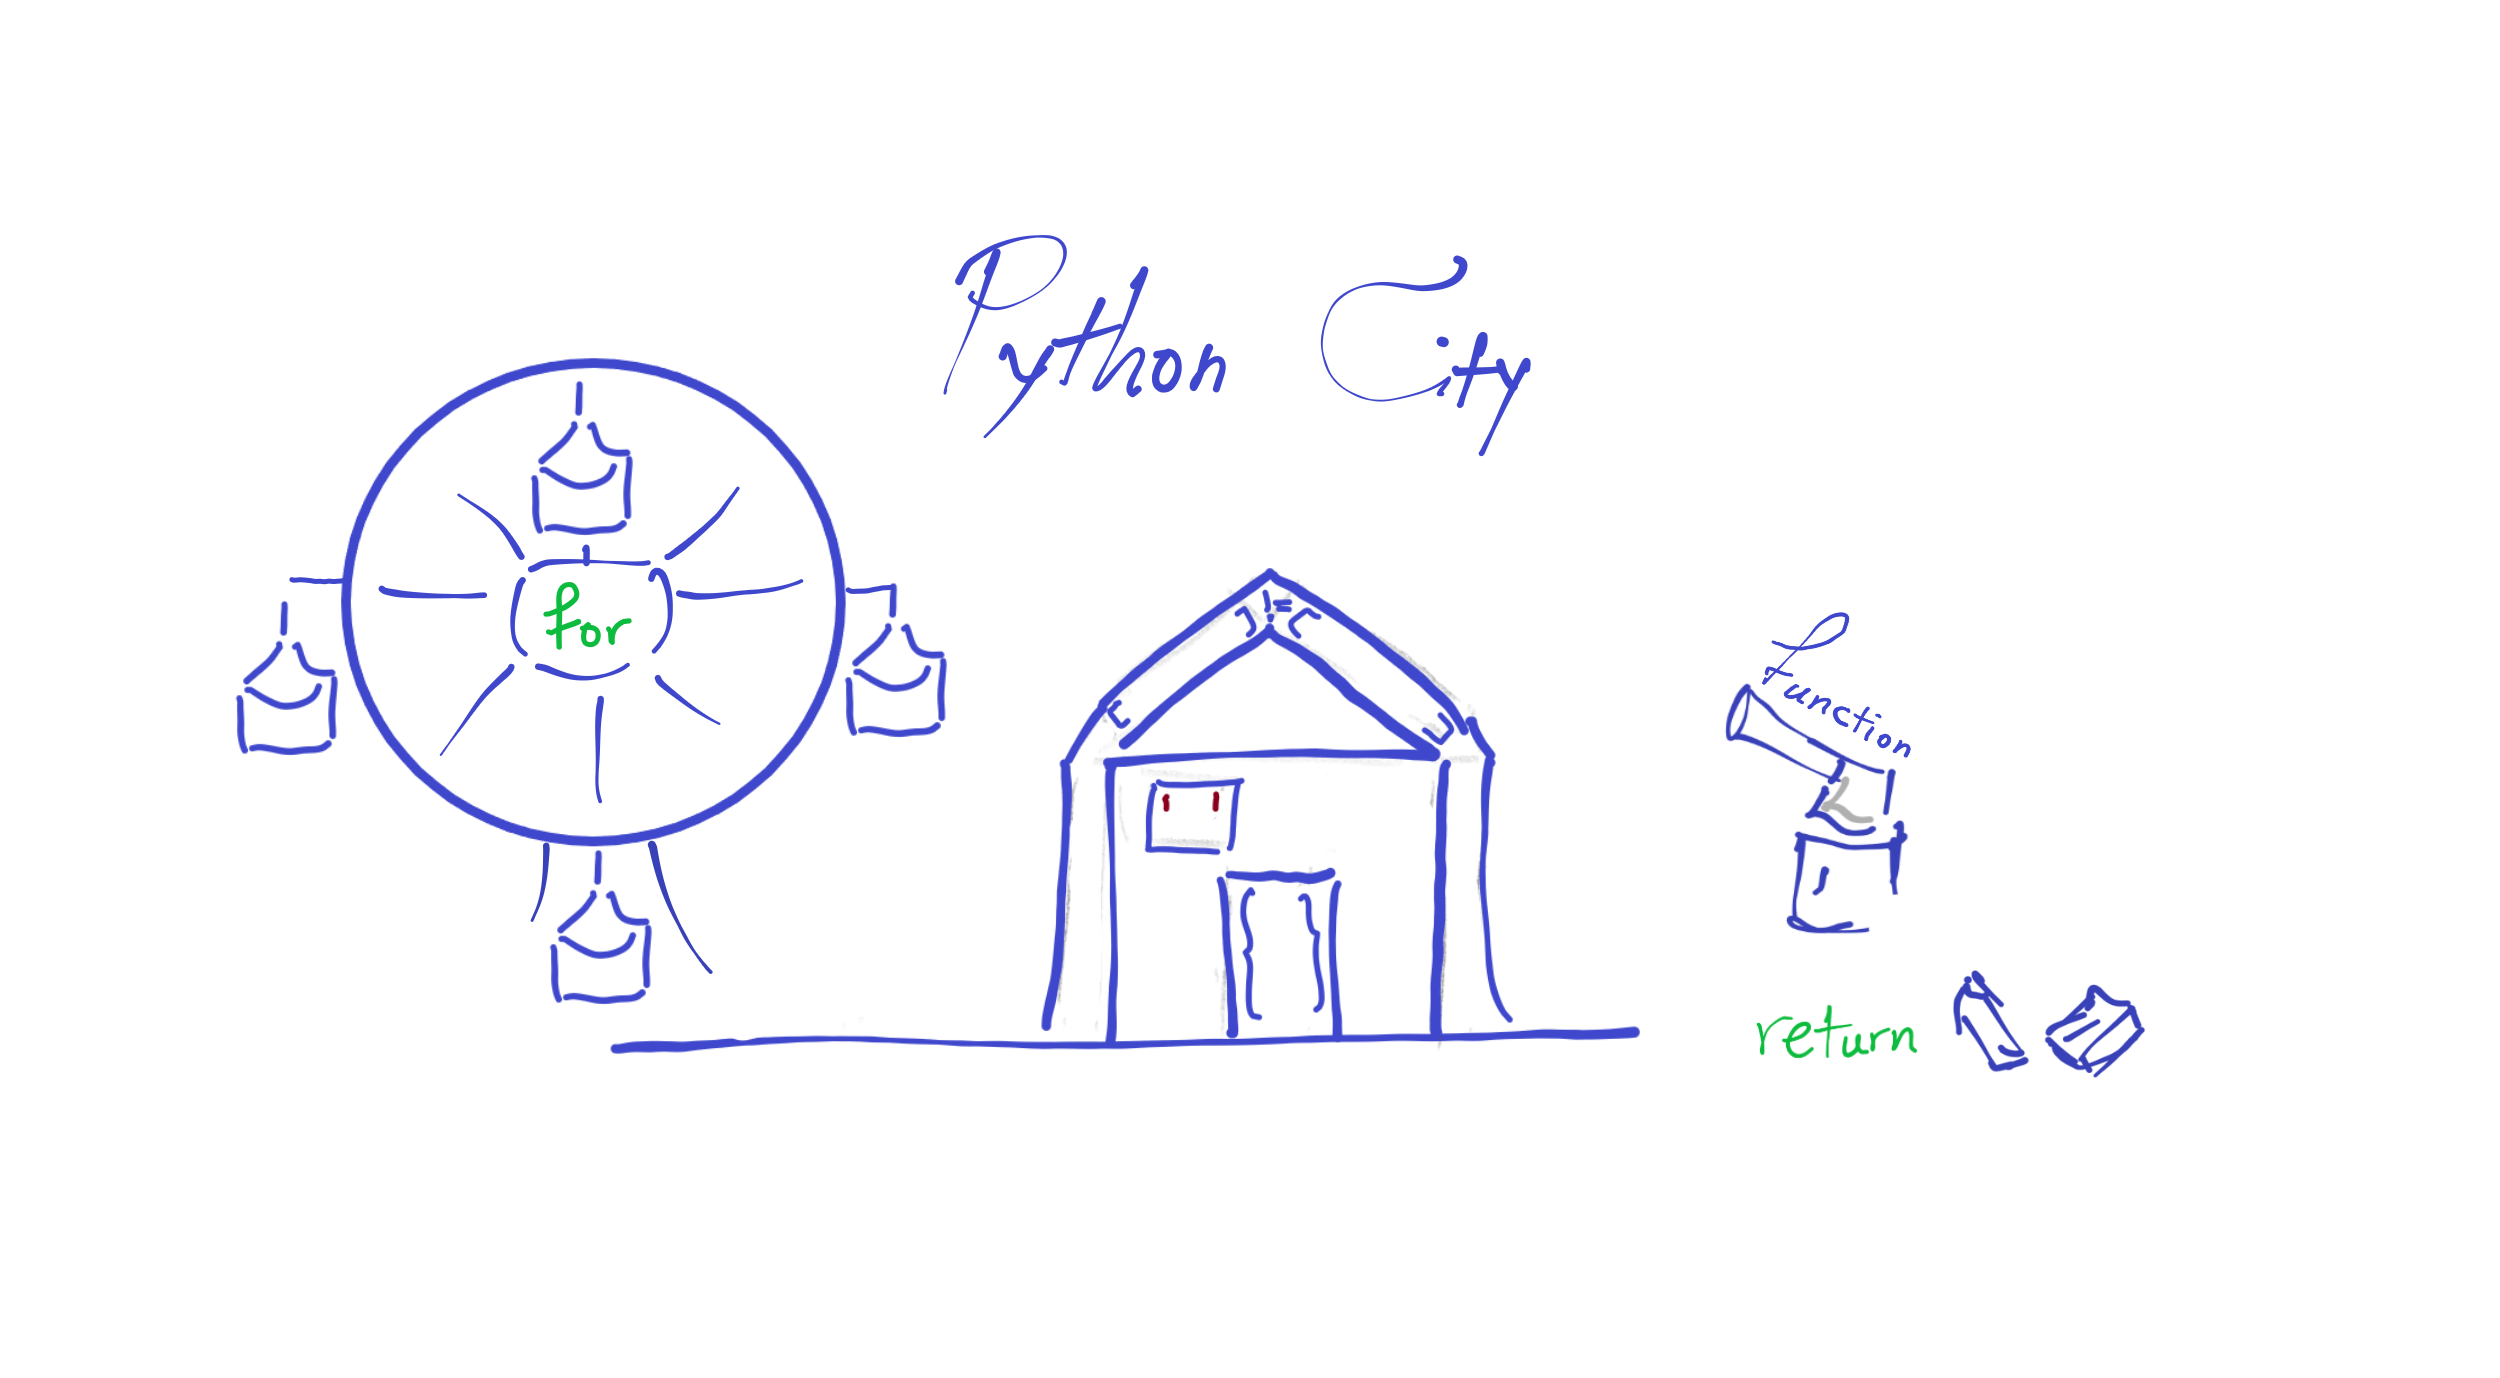 Python City
for
function
return